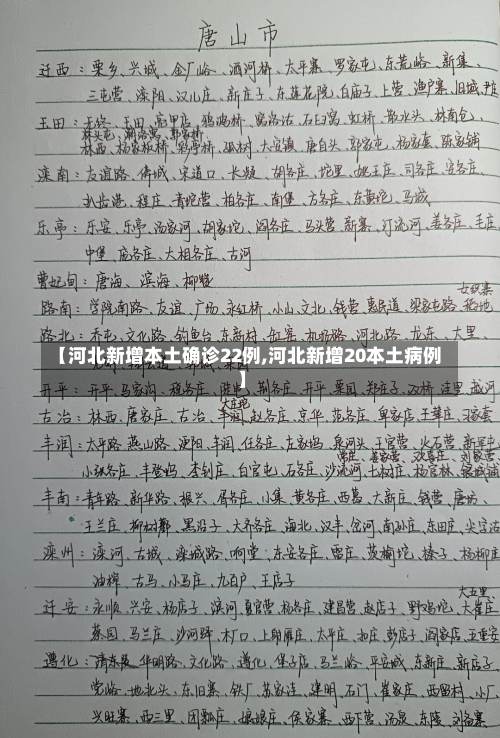 唐山市
迁西：栗乡、兴城、金厂峪、洒河桥、太平寨、罗家屯、东荒峪、新集、
三屯营、滦阳、汉儿庄、新庄子、东莲花院、白庙子、上营、渔户寨、旧城、尹庄
玉田：无终、玉田、亮甲店、鸦鸿桥、窝洛沽、石臼窝、虹桥、散水头、林南仓、
林头屯、潮洛窝、郭家桥
林西、杨家板桥、彩亭桥、孤树、大安镇、唐自头、郭家屯、杨家套、陈家铺
滦南：友谊路、倴城、宋道口、长凝、胡各庄、坨里、姚王庄、司各庄、安各庄、
扒齿港、程庄、青坨营、柏各庄、南堡、方各庄、东黄坨、马城
乐亭：乐安、乐亭、汤家河、胡家坨、阎各庄、马头营、新寨、汀流河、姜各庄、毛庄
中堡、庞各庄、大相各庄、古河
曹妃甸：唐海、滨海、柳赞
女织寨
路南：学院南路、友谊、广场、永红桥、小山、文北、钱营、惠民道、梁家屯路、稻地
路北：乔屯、文化路、钓鱼台、东新村、缸窑、机场路、河北路、龙东、大里、
【河北新增本土确诊22例,河北新增20本土病例
】
开平：开平、马家沟、税务庄、陡电、荆各庄、开平、栗园、郑庄子、双桥、洼里、越河
大庄坨
古冶：林西、唐家庄、古冶、赵各庄、京华、范各庄、卑家店、王辇庄、习家套
丰润：太平路、燕山路、浭阳、丰润、任各庄、左家坞、泉河头、王官营、火石营、新军屯
常庄、姜家营、欢喜庄、刘家营
小张各庄、丰登坞、李钊庄、白官屯、石各庄、沙流河、七树庄、杨官林、银城铺
丰南：青年路、新华路、振兴、胥各庄、小集、黄各庄、西葛、大新庄、钱营、唐坊、
王兰庄、柳树酄、黑沿子、大齐各庄、海北、汉丰、岔河、南孙庄、东田庄、尖字沽
滦州：滦河、古城、滦城路、响堂、东安各庄、雷庄、茨榆坨、榛子、杨柳庄
油榨、古马、小马庄、九百户、王店子
大五里
迁安：永顺、兴安、杨店子、滨河、夏官营、杨各庄、建昌营、赵店子、野鸡坨、大崔庄
蔡园、马兰庄、沙河驿、木厂口、上射雁庄、太平庄、扣庄、彭店子、阎家店、五重安
遵化：清东陵、华明路、文化路、遵化、堡子店、马兰峪、平安城、东新庄、新店子、
党峪、地北头、东旧寨、铁厂、苏家洼、建明、石门、崔家庄、西留村、小厂、
兴旺寨、西三里、团瓢庄、娘娘庄、侯家寨、西下营、汤泉、东陵、刘备寨